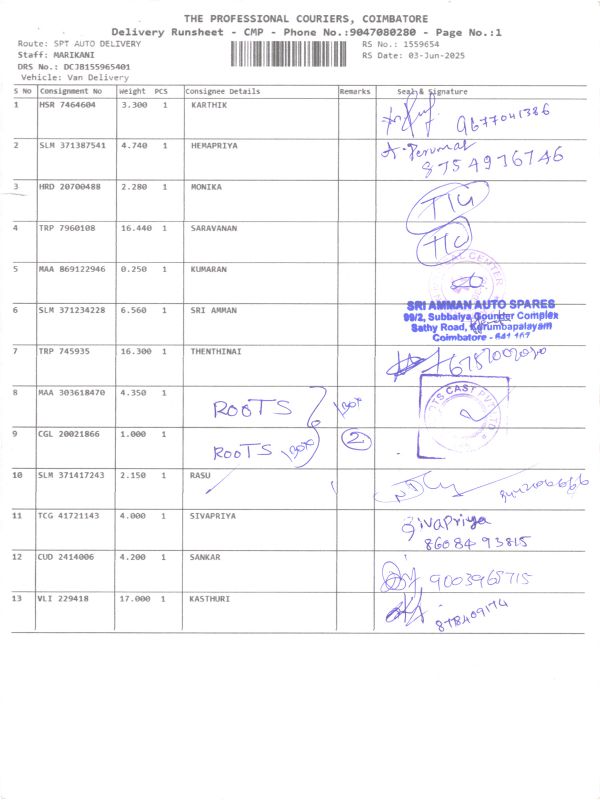 THE PROFESSIONAL COURIERS, COIMBATORE
Delivery Runsheet - CMP - Phone No.:9047080280 - Page No.:1
Route: SPT AUTO DELIVERY RS No.: 1559654
Staff: MARIKANI RS Date: 03-Jun-2025
DRS No.: DCJB155965401
Vehicle: Van Delivery
S No Consignment No Weight PCS Consignee Details Remarks Seal & Signature
1 HSR 7464604 3.300 1 KARTHIK 9677041386
2 SLM 371387541 4.740 1 HEMAPRIYA A. Perumal
8754976746
3 HRD 20700488 2.280 1 MONIKA
4 TRP 7960108 16.440 1 SARAVANAN
5 MAA 869122946 0.250 1 KUMARAN CENTER
6 SLM 371234228 6.560 1 SRI AMMAN SRI AMMAN AUTO SPARES
99/2, Subbaiya Gounder Complex
Sathy Road, Kurumbapalayam
Coimbatore - 641 107
7 TRP 745935 16.300 1 THENTHINAI
8 MAA 303618470 4.350 1 ROOTS 1 Box
9 CGL 20021866 1.000 1 ROOTS 1 Box 2
10 SLM 371417243 2.150 1 RASU
11 TCG 41721143 4.000 1 SIVAPRIYA Sivapriya
86084 93815
12 CUD 2414006 4.200 1 SANKAR 9003965715
13 VLI 229418 17.000 1 KASTHURI